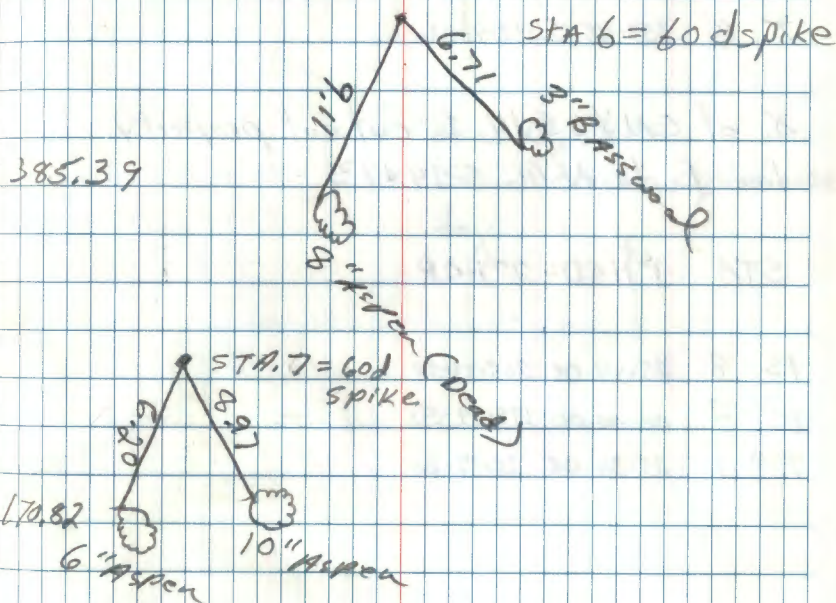 STA 6 = 60d spike
6.71
9.11
3" Basswood
385.39
8" Aspen (Dead)
STA. 7 = 60d
spike
6.20
8.97
170.82
6" Aspen
10" Aspen